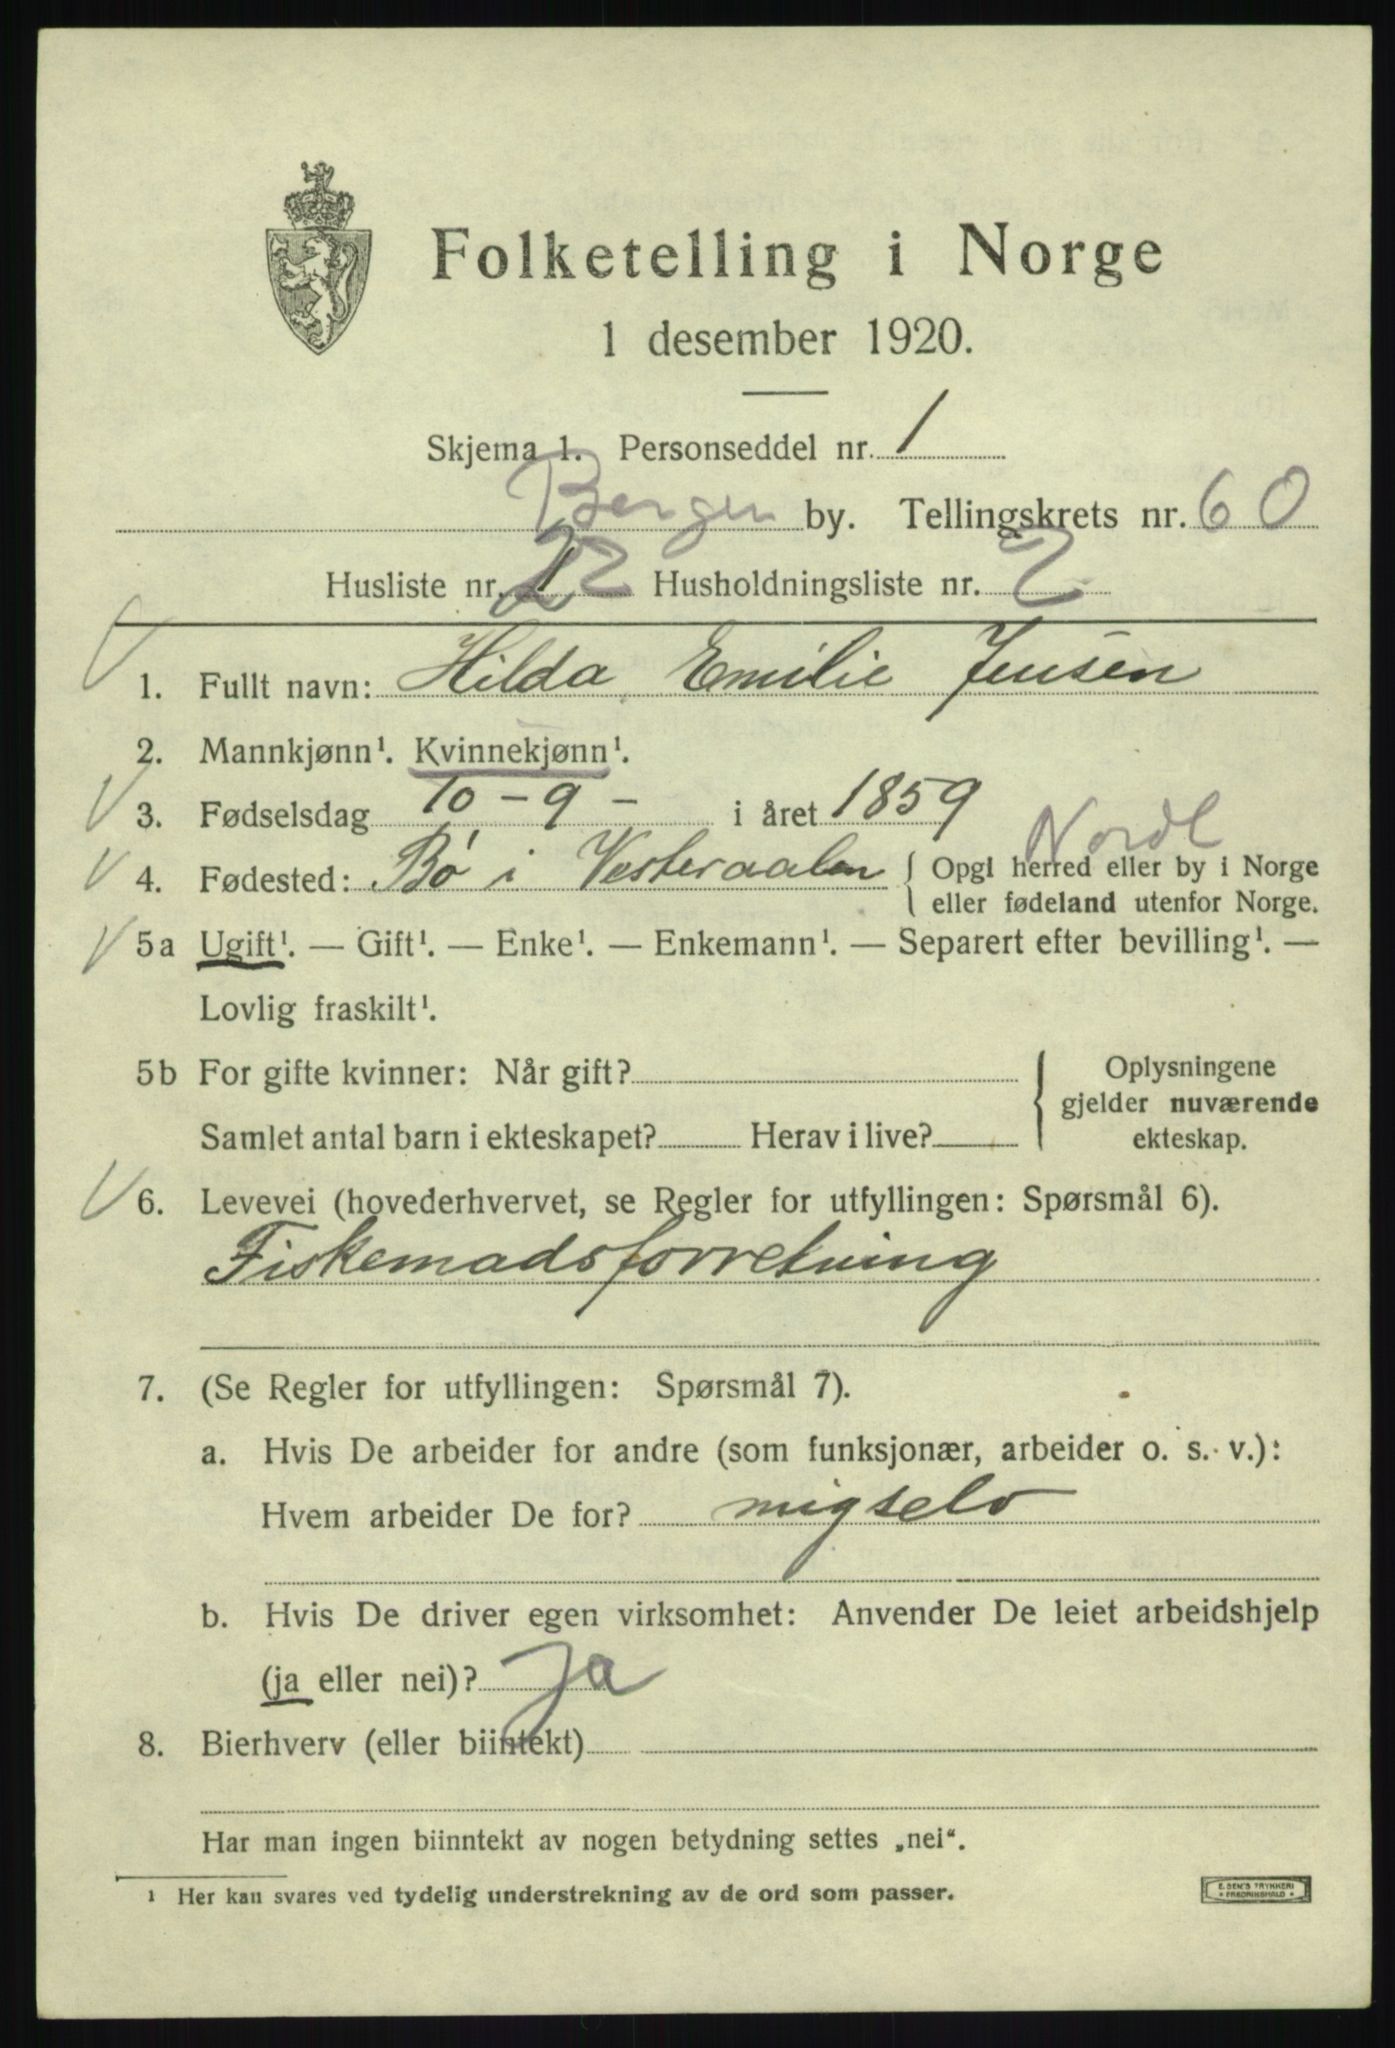 Folketelling i Norge
1 desember 1920.
Skjema 1. Personseddel nr. 1
Bergen by. Tellingskrets nr. 60
Husliste nr. 22 Husholdningsliste nr. 2
1. Fullt navn: Hilda Emilie Jensen
2. Mannkjønn¹. Kvinnekjønn¹.
3. Fødselsdag 10-9- i året 1859
Nordl
4. Fødested: Bø i Vesteraalen { Opgi herred eller by i Norge
eller fødeland utenfor Norge.
5a Ugift¹. — Gift¹. — Enke¹. — Enkemann¹. — Separert efter bevilling¹. —
Lovlig fraskilt¹.
5b For gifte kvinner: Når gift?
Samlet antal barn i ekteskapet? Herav i live?
Oplysningene
gjelder nuværende
ekteskap.
6. Levevei (hovederhvervet, se Regler for utfyllingen: Spørsmål 6).
Fiskemadsforretning
7. (Se Regler for utfyllingen: Spørsmål 7).
a. Hvis De arbeider for andre (som funksjonær, arbeider o. s. v.):
Hvem arbeider De for? migselv
b. Hvis De driver egen virksomhet: Anvender De leiet arbeidshjelp
(ja eller nei)? Ja
8. Bierhverv (eller biintekt)
Har man ingen biinntekt av nogen betydning settes „nei“.
¹ Her kan svares ved tydelig understrekning av de ord som passer.
E. SEM'S TRYKKERI
• FREDRIKSHALD •